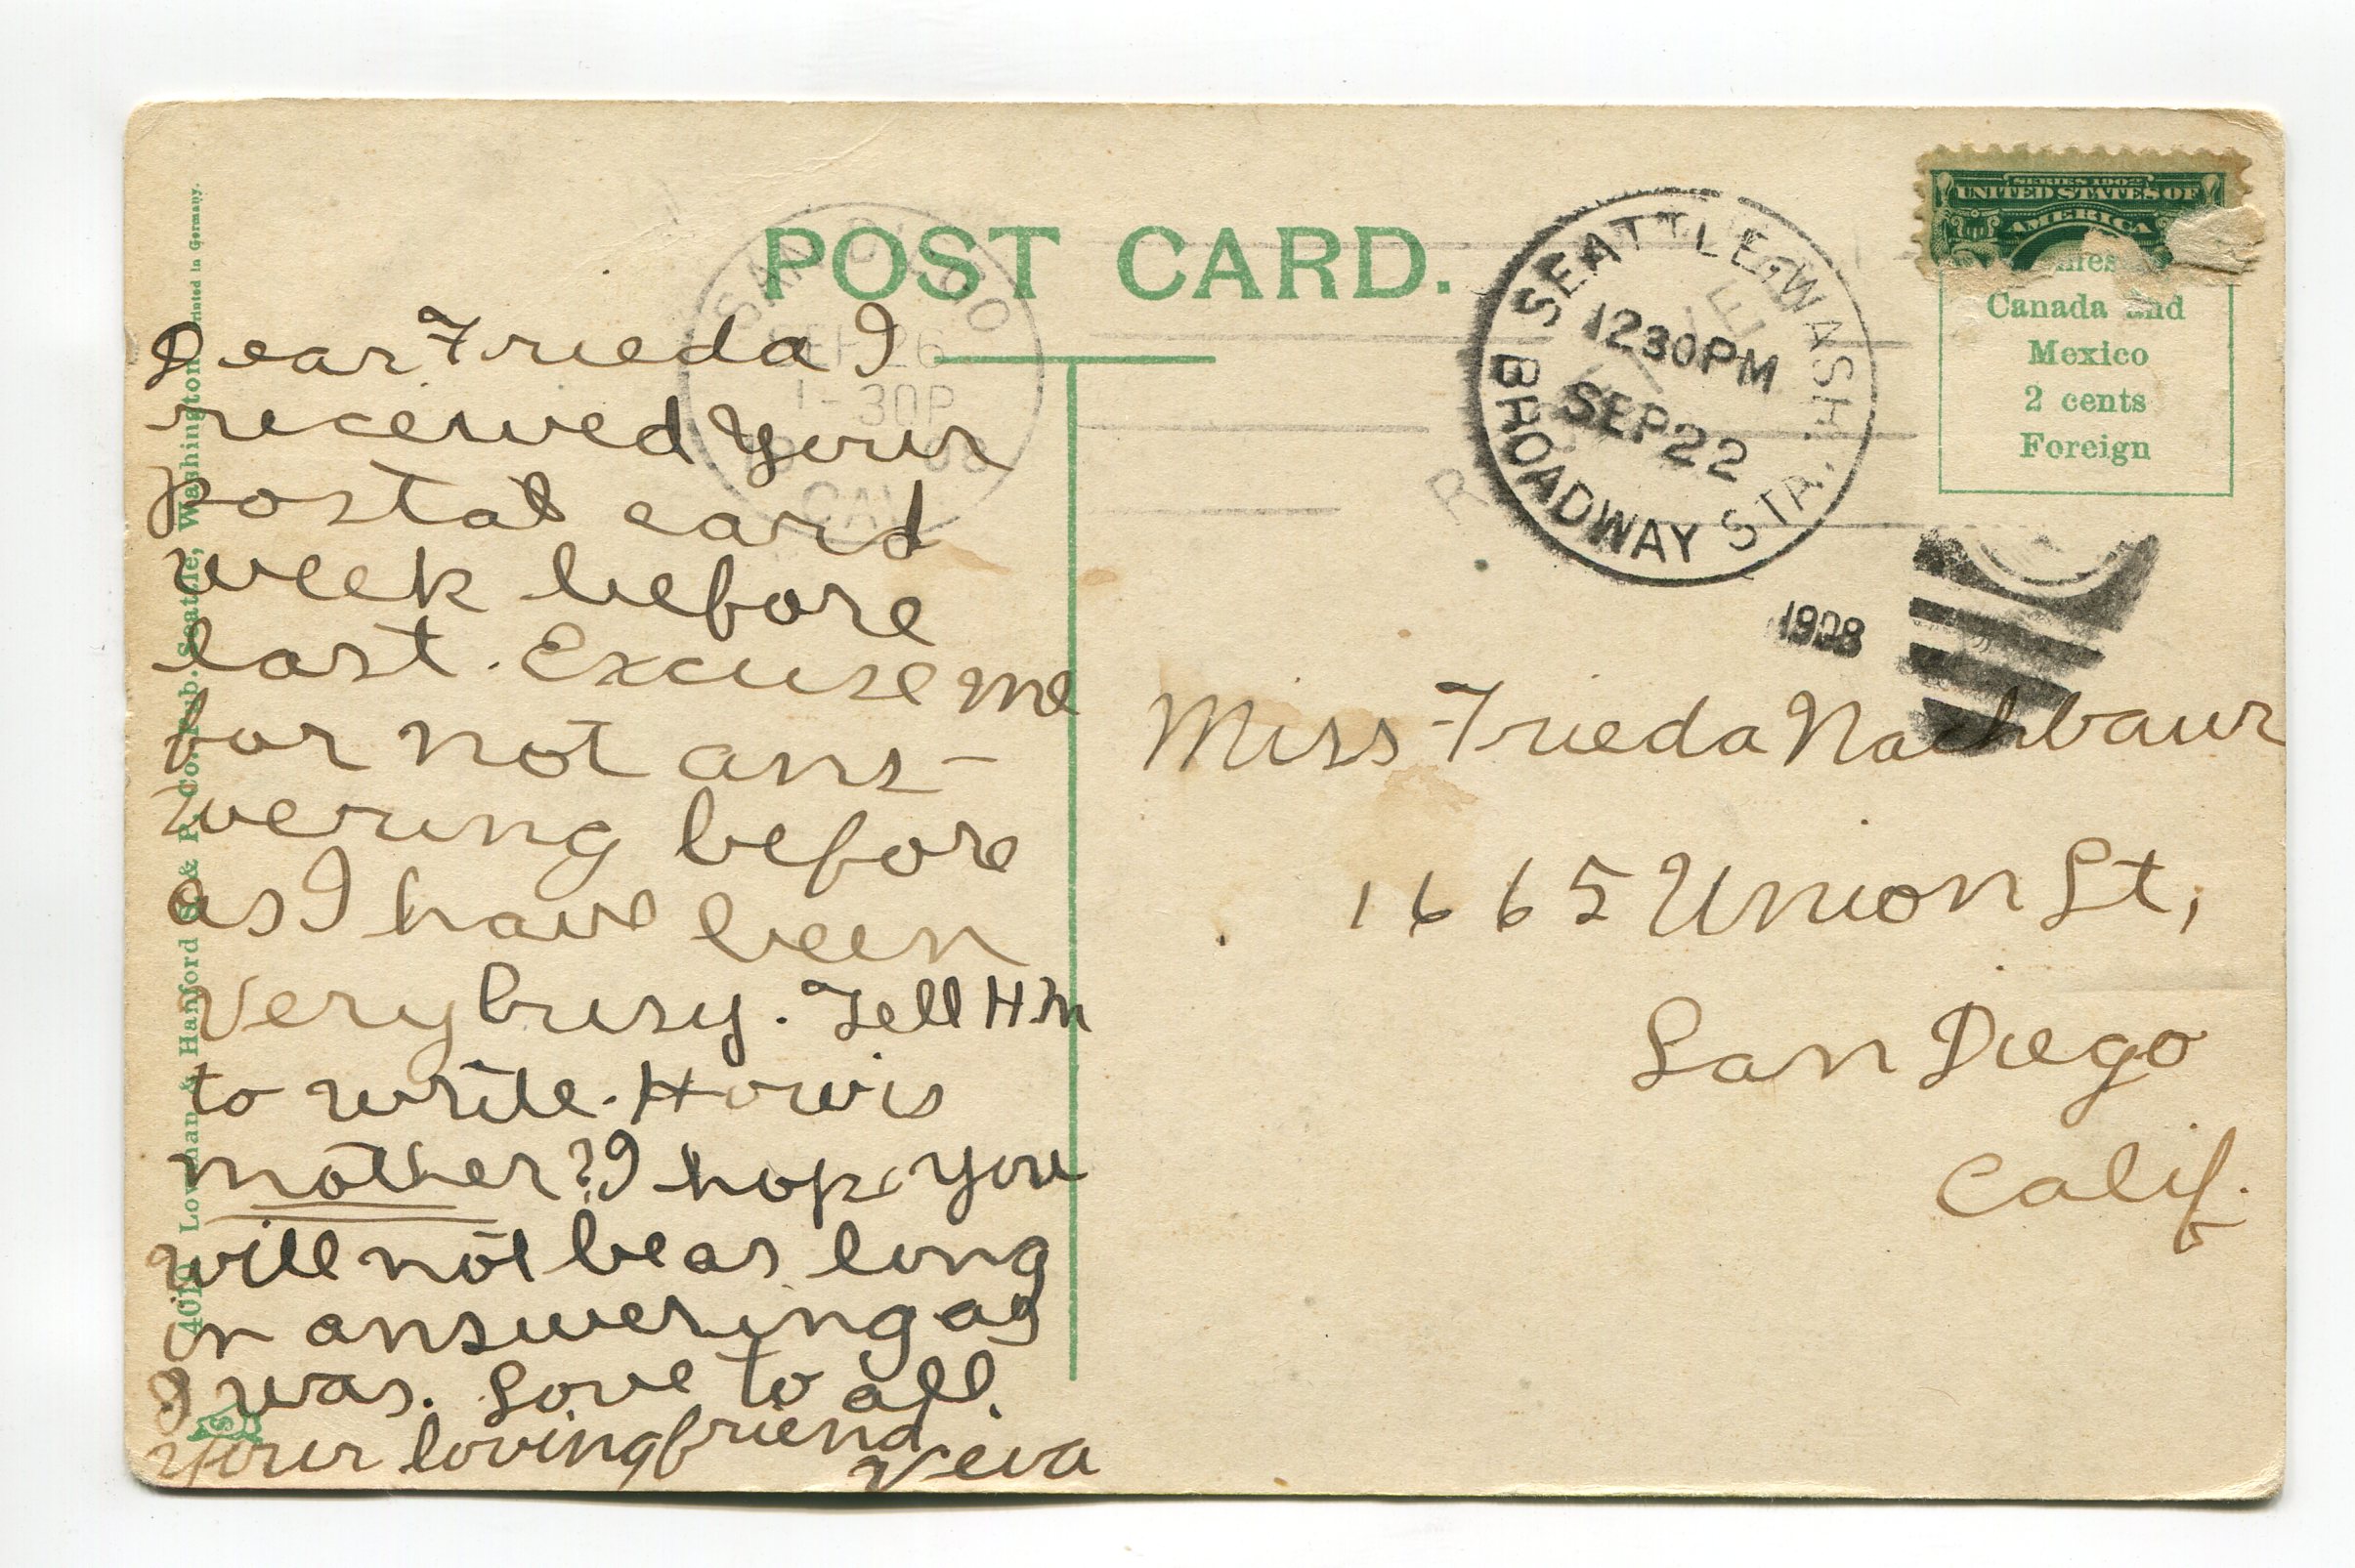 POST CARD.
SERIES 1902
UNITED STATES OF
AMERICA
Canada and
Mexico
2 cents
Foreign
SEATTLE, WASH.
1230PM
SEP 22
BROADWAY STA.
1908
SAN DIEGO
SEP 26
1-30P
CAL
Dear Frieda I
received your
postal card
week before
last. Excuse me
for not ans-
wering before
as I have been
very busy. Tell H.M
to write. How is
mother? I hope you
will not be as long
in answering as
I was. Love to all.
Your loving friend
Veva
Miss Frieda Nachbaur
1665 Union St,
San Diego
Calif.
Lowman & Hanford S. & P. Co. Pub. Seattle, Washington. Printed in Germany.